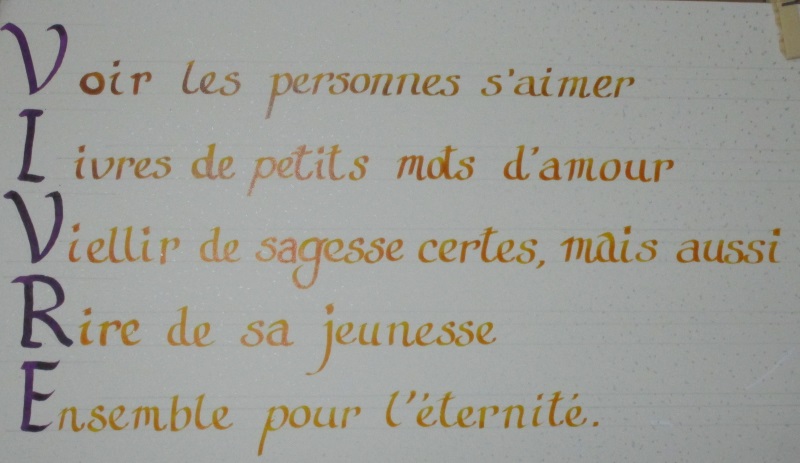 Voir les personnes s'aimer
Ivres de petits mots d'amour
Viellir de sagesse certes, mais aussi
Rire de sa jeunesse
Ensemble pour l'éternité.